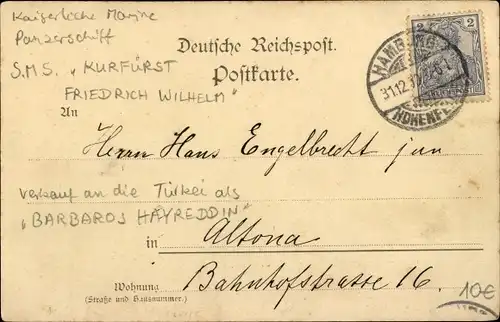 Kaiserliche Marine
Panzerschiff
S.M.S. „KURFÜRST
FRIEDRICH WILHELM"
Deutsche Reichspost.
Postkarte.
2 2
HAMBURG
31.12.
HOHENF
An
Herrn Hans Engelbrecht jun
Verkauf an die Türkei als
„BARBAROS HAYREDDIN"
in Altona
Wohnung Bahnhofstrasse 16.
(Straße und Hausnummer.)
10€